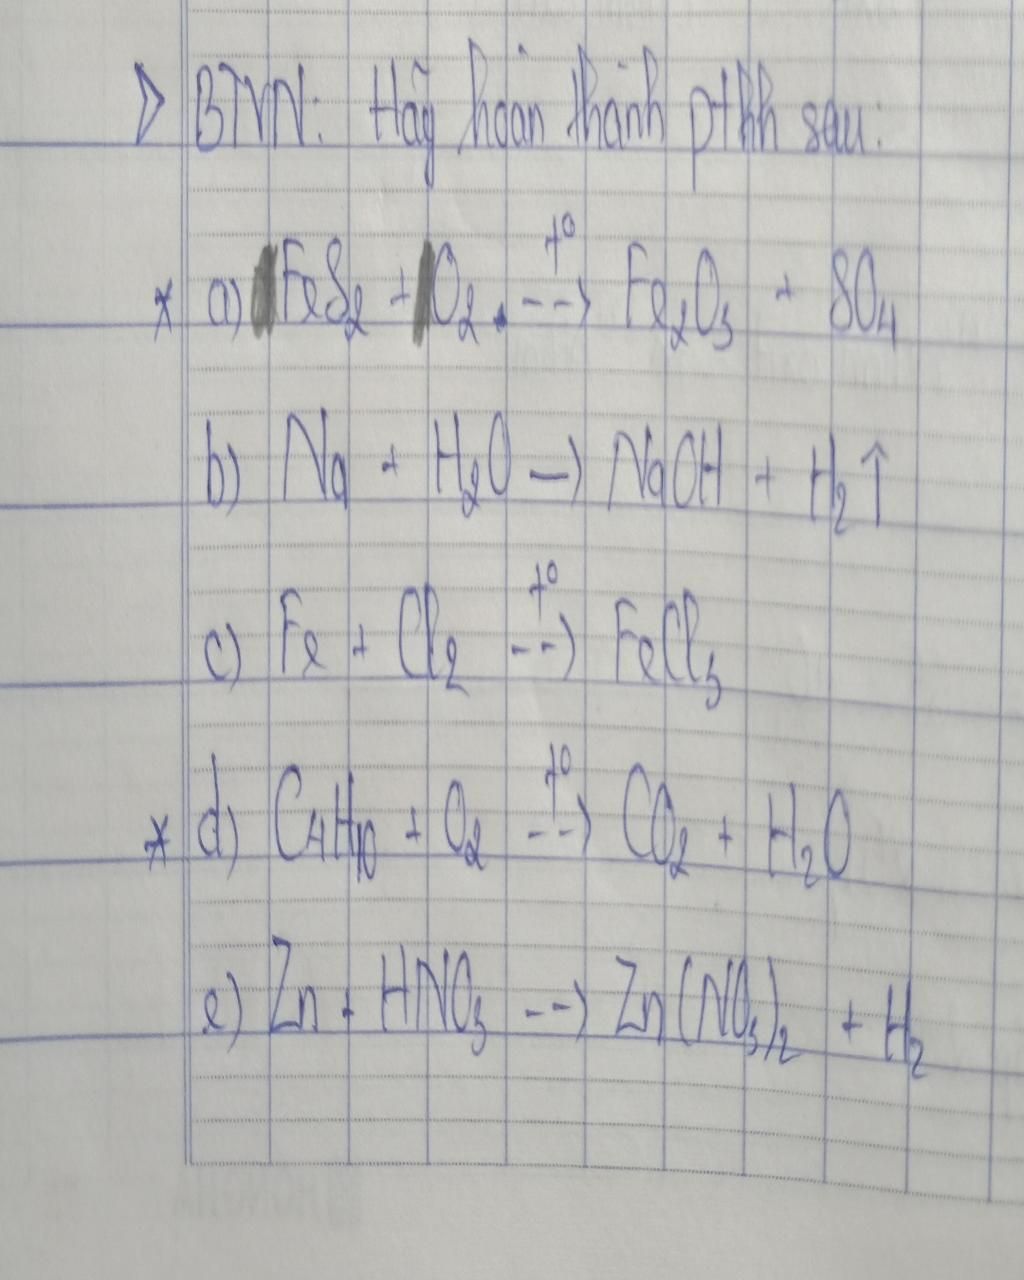 BTVN: Hãy hoàn thành pthh sau:
* a) FeS₂ + O₂ --t⁰--> Fe₂O₃ + SO₄
b) Na + H₂O → NaOH + H₂↑
c) Fe + Cl₂ --t⁰--> FeCl₃
* d) C₄H₁₀ + O₂ --t⁰--> CO₂ + H₂O
e) Zn + HNO₃ --> Zn(NO₃)₂ + H₂